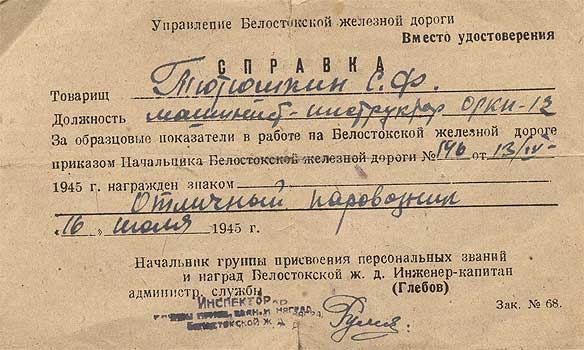 Управление Белостокской железной дороги
Вместо удостоверения
СПРАВКА
Товарищ Тютюшкин С.Ф.
Должность машинист-инструктор ОРКП-12
За образцовые показатели в работе на Белостокской железной дороге
приказом Начальника Белостокской железной дороги № 196 от 13/IV-
1945 г. награжден знаком
Отличный паровозник
"16" июля 1945 г.
Начальник группы присвоения персональных званий
и наград Белостокской ж. д. Инженер-капитан
администр. службы (Глебов)
ИНСПЕКТОР
Белостокской ж. д.
Зак. № 68.